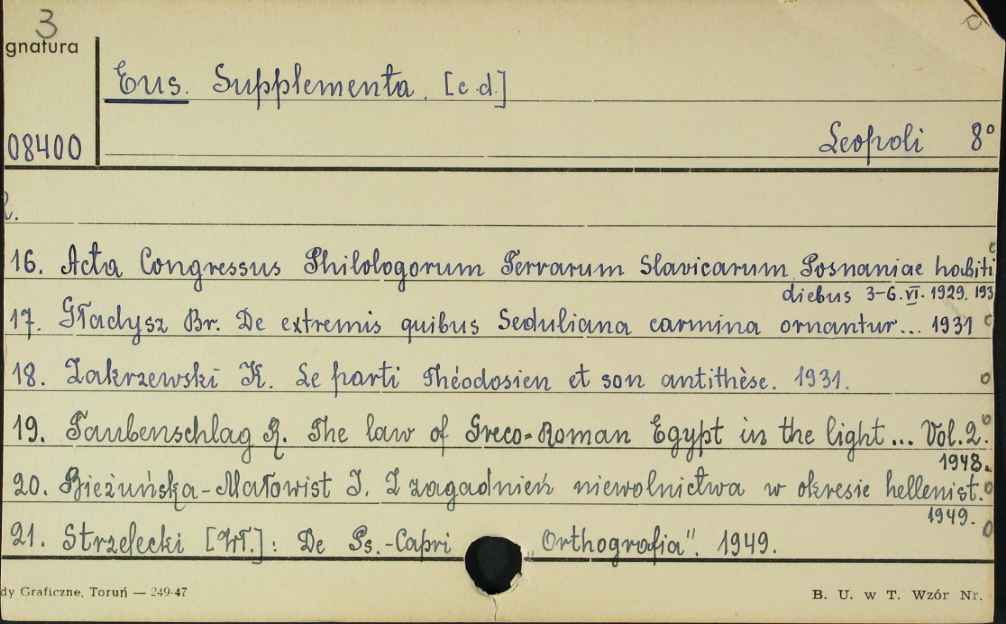 3
gnatura
Eus. Supplementa. [c.d.]
08400
Leopoli 8°
16. Acta Congressus Philologorum Terrarum Slavicarum Posnaniae habiti
diebus 3-6.VI. 1929. 193
17. Gładysz Br. De extremis quibus Seduliana carmina ornantur... 1931
18. Zakrzewski K. Le parti Théodosien et son antithèse. 1931.
19. Taubenschlag R. The law of Greco-Roman Egypt in the light... Vol.2.
1948.
20. Bieżuńska-Małowist I. Z zagadnień niewolnictwa w okresie hellenist.
1949.
21. Strzelecki [Wł.]: De Ps.-Capri „Orthografia". 1949.
dy Graficzne, Toruń — 249-47
B. U. w T. Wzór Nr.